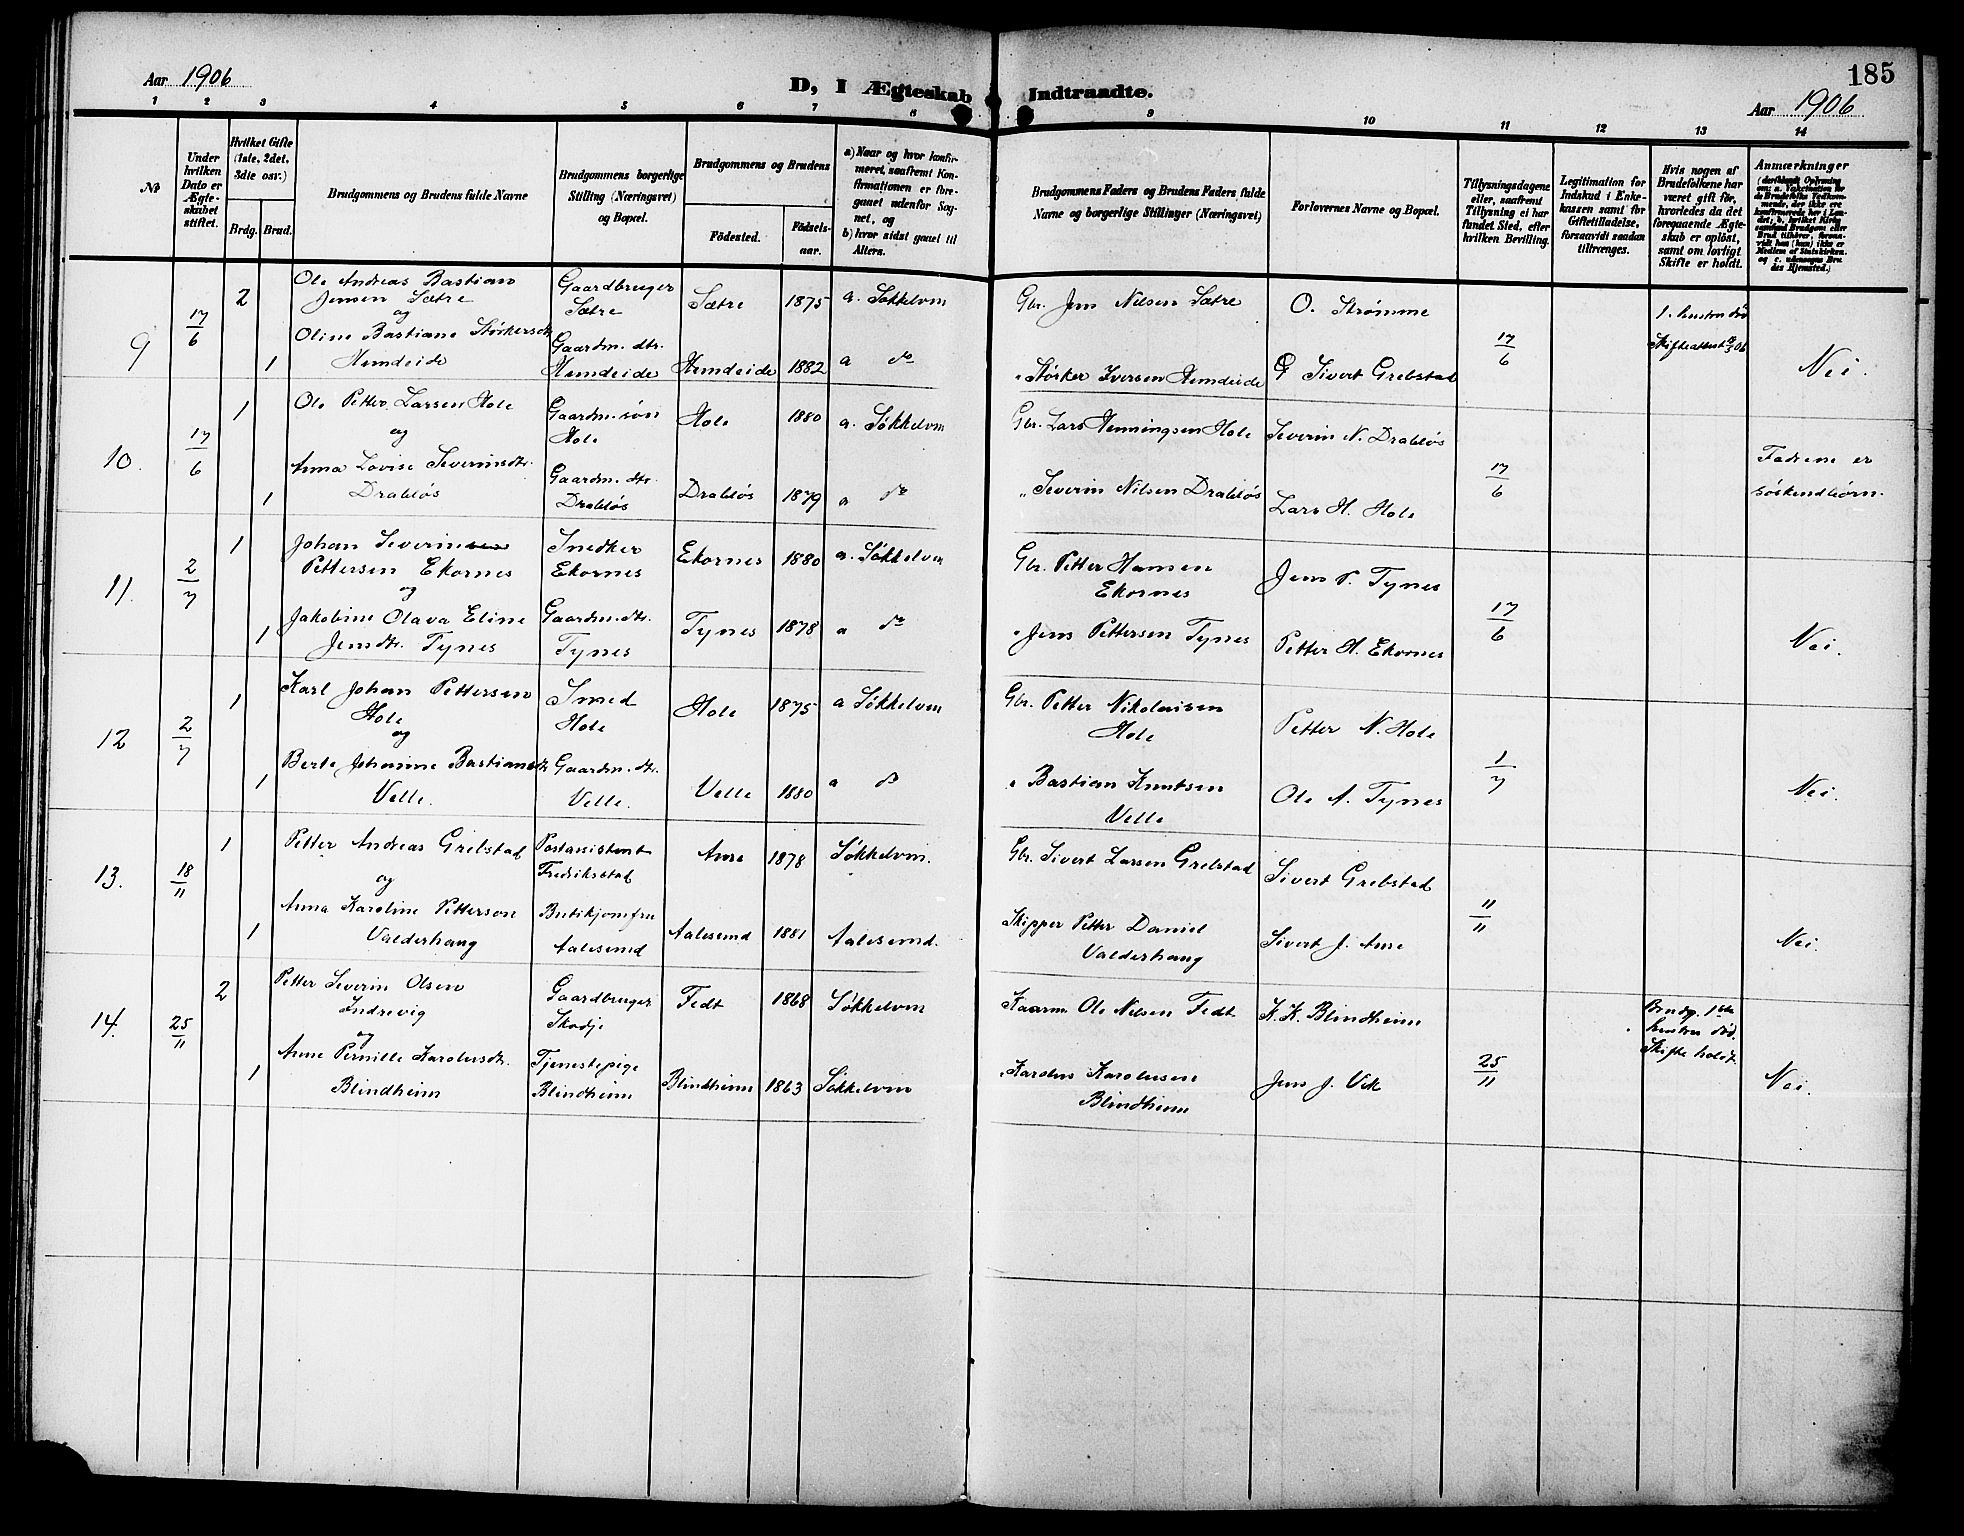 Aar 1906
D, I Ægteskab Indtraadte.
185
Aar 1906
1 2 3 4 5 6 7 8 9 10 11 12 13 14
No
Under hvilken Dato er Ægteskabet stiftet.
Hvilket Gifte (1ste, 2det, 3die osv.)
Brdg. Brud.
Brudgommens og Brudens fulde Navne
Brudgommens borgerlige Stilling (Næringsvei) og Bopæl.
Brudgommens og Brudens
Födested.
Födselsaar.
a) Naar og hvor konfirmeret, saafremt Konfirmationen er foregaaet udenfor Sognet, og
b) hvor sidst gaaet til Alters.
Brudgommens Faders og Brudens Faders fulde Navne og borgerlige Stillinger (Næringsvei)
Forlovernes Navne og Bopæl.
Tillysningsdagene eller, saafremt Tillysning ei har fundet Sted, efter hvilken Bevilling.
Legitimation for Indskud i Enkekassen samt for Giftetilladelse, forsaavidt saadan tiltrænges.
Hvis nogen af Brudefolkene har været gift før, hvorledes da det foregaaende Ægteskab er opløst, samt om lovligt Skifte er holdt.
Anmærkninger
9 17/6 2 Ole Andreas Bastian Jensen Sætre Gaardbruger Sætre Sætre 1875 a. Søkkelven Gbr. Jens Nilsen Sætre O. Strømme 17/6 1. hustru død Skifteattest
og
1 Oline Bastiane Størkersdtr. Hemdeide Gaardm. dtr. Hemdeide Hemdeide 1882 a do " Størker Iversen Hemdeide Sivert Grebstad Nei.
10. 17/6 1 Ole Petter Larsen Hole Gaardm. søn Hole Hole 1880 a. Søkkelven Gbr. Lars Henningsen Hole Severin N. Drabløs 17/6 Fædrene er søskendbørn.
og
1 Anna Lovise Severinsdtr. Drabløs Gaardm. dtr. Drabløs Drabløs 1879 a do " Severin Nilsen Drabløs Lars H. Hole
11. 2/7 1 Johan Severin Pettersen Ekornes Snedker Ekornes Ekornes 1880 a. Søkkelven Gbr. Petter Hansen Ekornes Jens P. Tynes 17/6
og
1 Jakobine Olava Eline Jensdtr. Tynes Gaardm. dtr. Tynes Tynes 1878 a do " Jens Pettersen Tynes Petter H. Ekornes Nei.
12 2/7 1 Karl Johan Pettersen Hole Smed Hole Hole 1875 a Søkkelven Gbr. Petter Nikolaisen Hole Petter N. Hole 1/7
og
1 Berte Johanne Bastiansdtr. Velle. Gaardm. dtr. Velle. Velle 1880 a do " Bastian Knutsen Velle Ole A. Tynes Nei.
13. 18/11 1 Petter Andreas Grebstad Postassistent Fredriksstad Aure 1878 Søkkelven. Gbr. Sivert Larsen Grebstad Sivert Grebstad 11/11
og
1 Anna Karoline Petterson Valderhaug Butikjomfru Aalesund Aalesund 1881 Aalesund. Skipper Petter Daniel Valderhaug Sivert J. Aure Nei.
14. 25/11 2 Petter Severin Olsen Indrevig Gaardbruger Skodje Fedt 1868 Søkkelven Kaarm. Ole Nilsen Fedt K. K. Blindheim 25/11 Brudg. 1ste hustru død. Skifte holdt.
og
1 Anne Pernille Karolusdtr. Blindheim Tjenestepige Blindheim Blindheim 1863 Søkkelven " Karolus Karolussen Blindheim Jens J. Vik Nei.